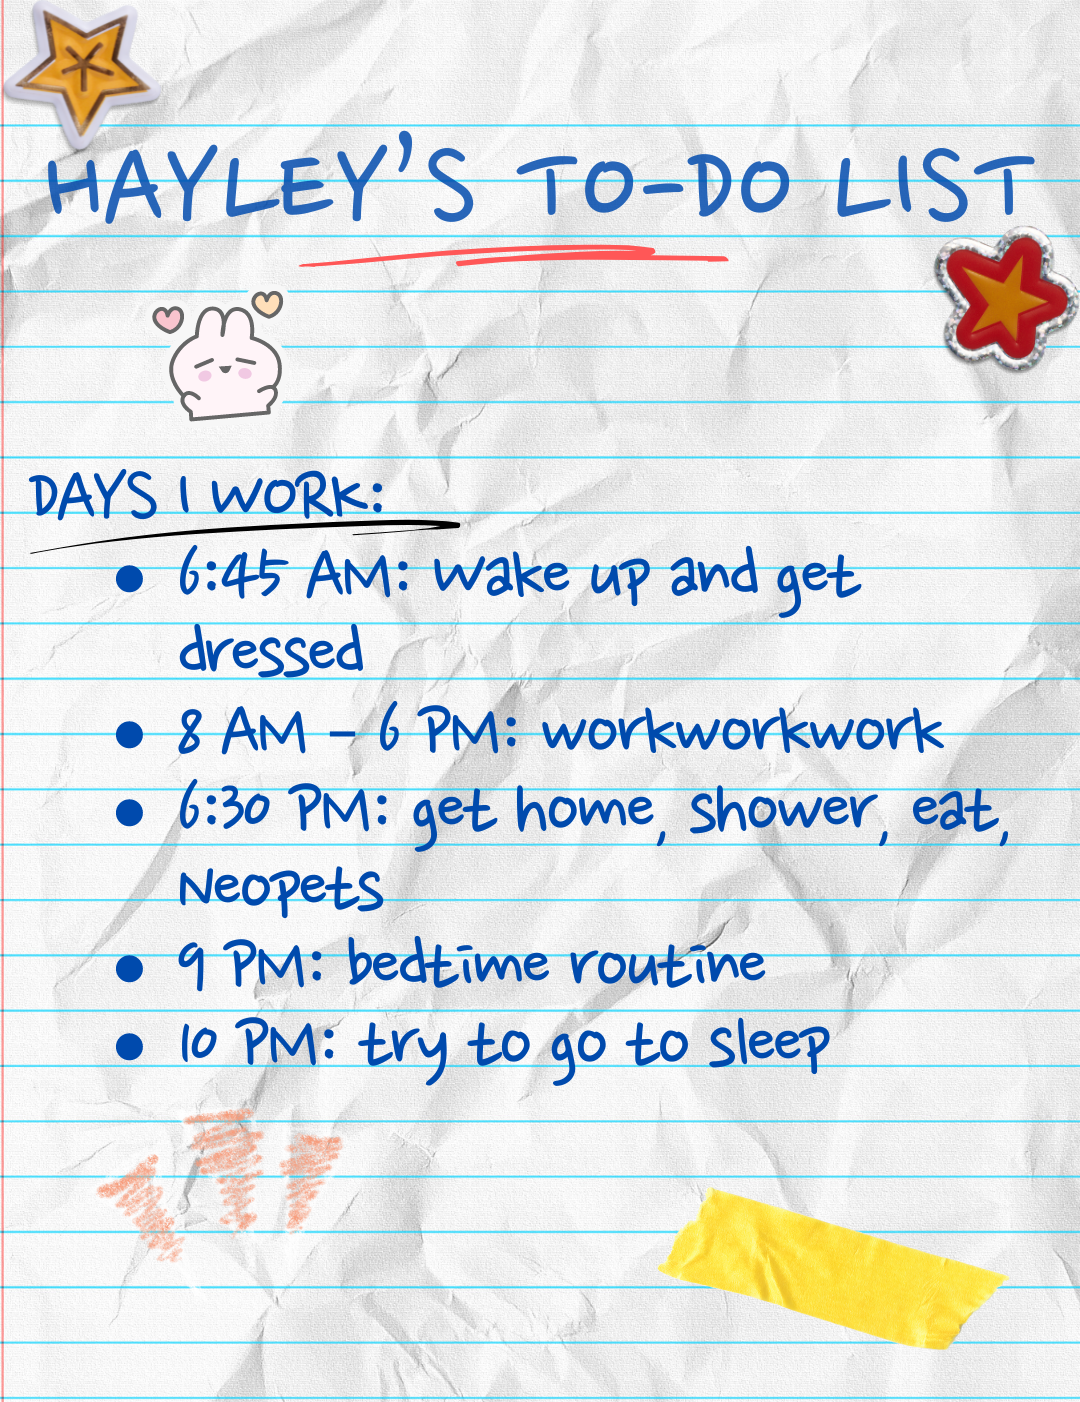 HAYLEY'S TO-DO LIST
DAYS I WORK:
• 6:45 AM: wake up and get
dressed
• 8 AM - 6 PM: workworkwork
• 6:30 PM: get home, shower, eat,
Neopets
• 9 PM: bedtime routine
• 10 PM: try to go to sleep